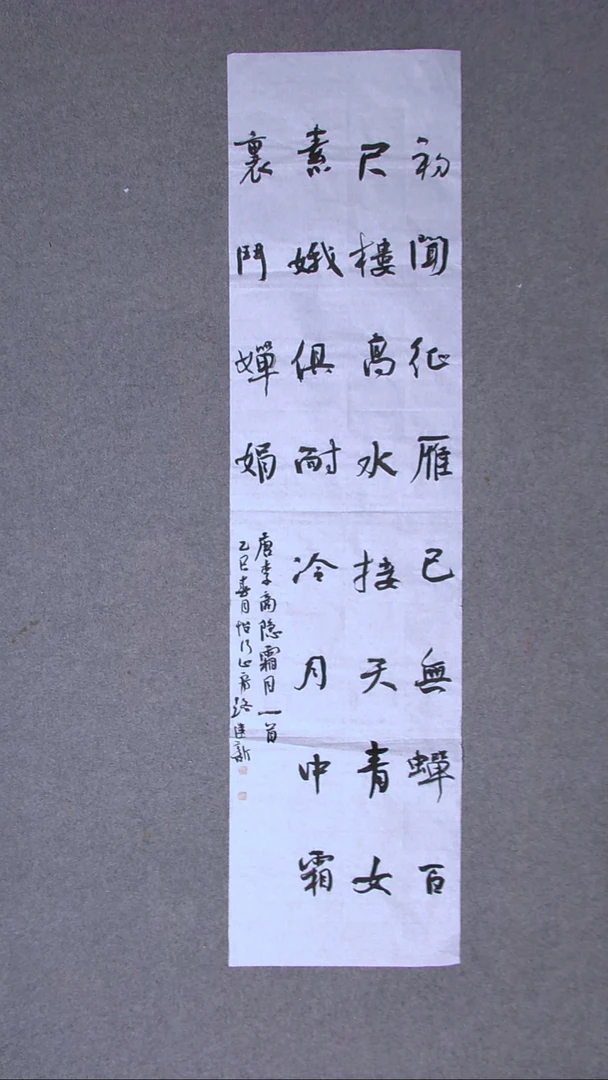 初聞征雁已無蟬百
尺樓高水接天青女
素娥俱耐冷月中霜
裏鬥嬋娟
唐李商隐霜月一首
乙巳春月
建新